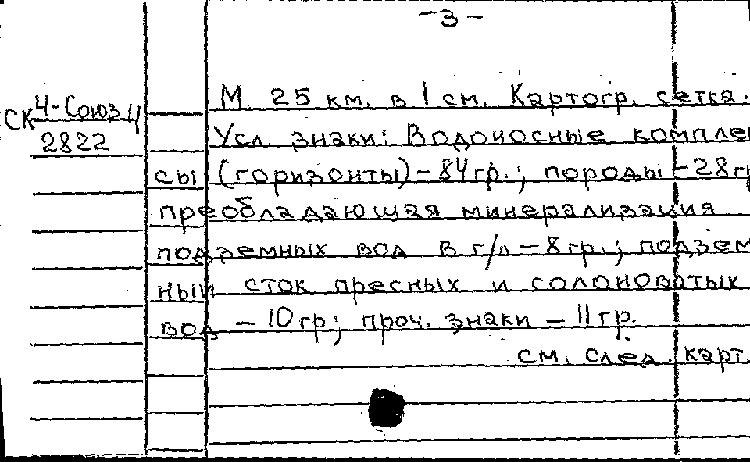 -3-
СК 4-Союз/4
2822
М 25 км. в 1 см. Картогр. сетка.
Усл. знаки: Водоносные комплек
сы (горизонты) - 84 гр.; породы - 28 гр
преобладающая минерализация
подземных вод в г/л - 8 гр.; подзем
ный сток пресных и солоноватых
вод - 10 гр; проч. знаки - 11 гр.
см. след. карт